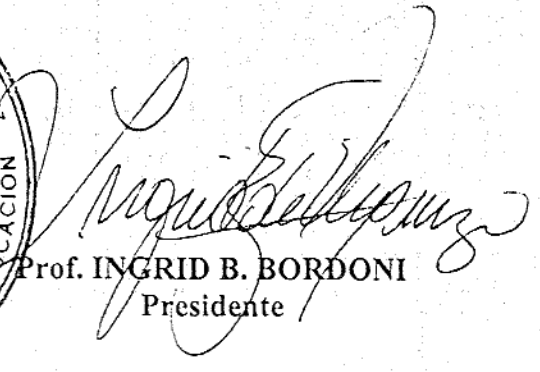 CACION
Prof. INGRID B. BORDONI
Presidente